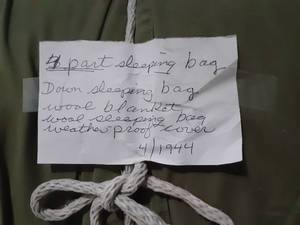 4 part sleeping bag
Down sleeping bag
wool blanket
wool sleeping bag
weather proof cover
4/1944